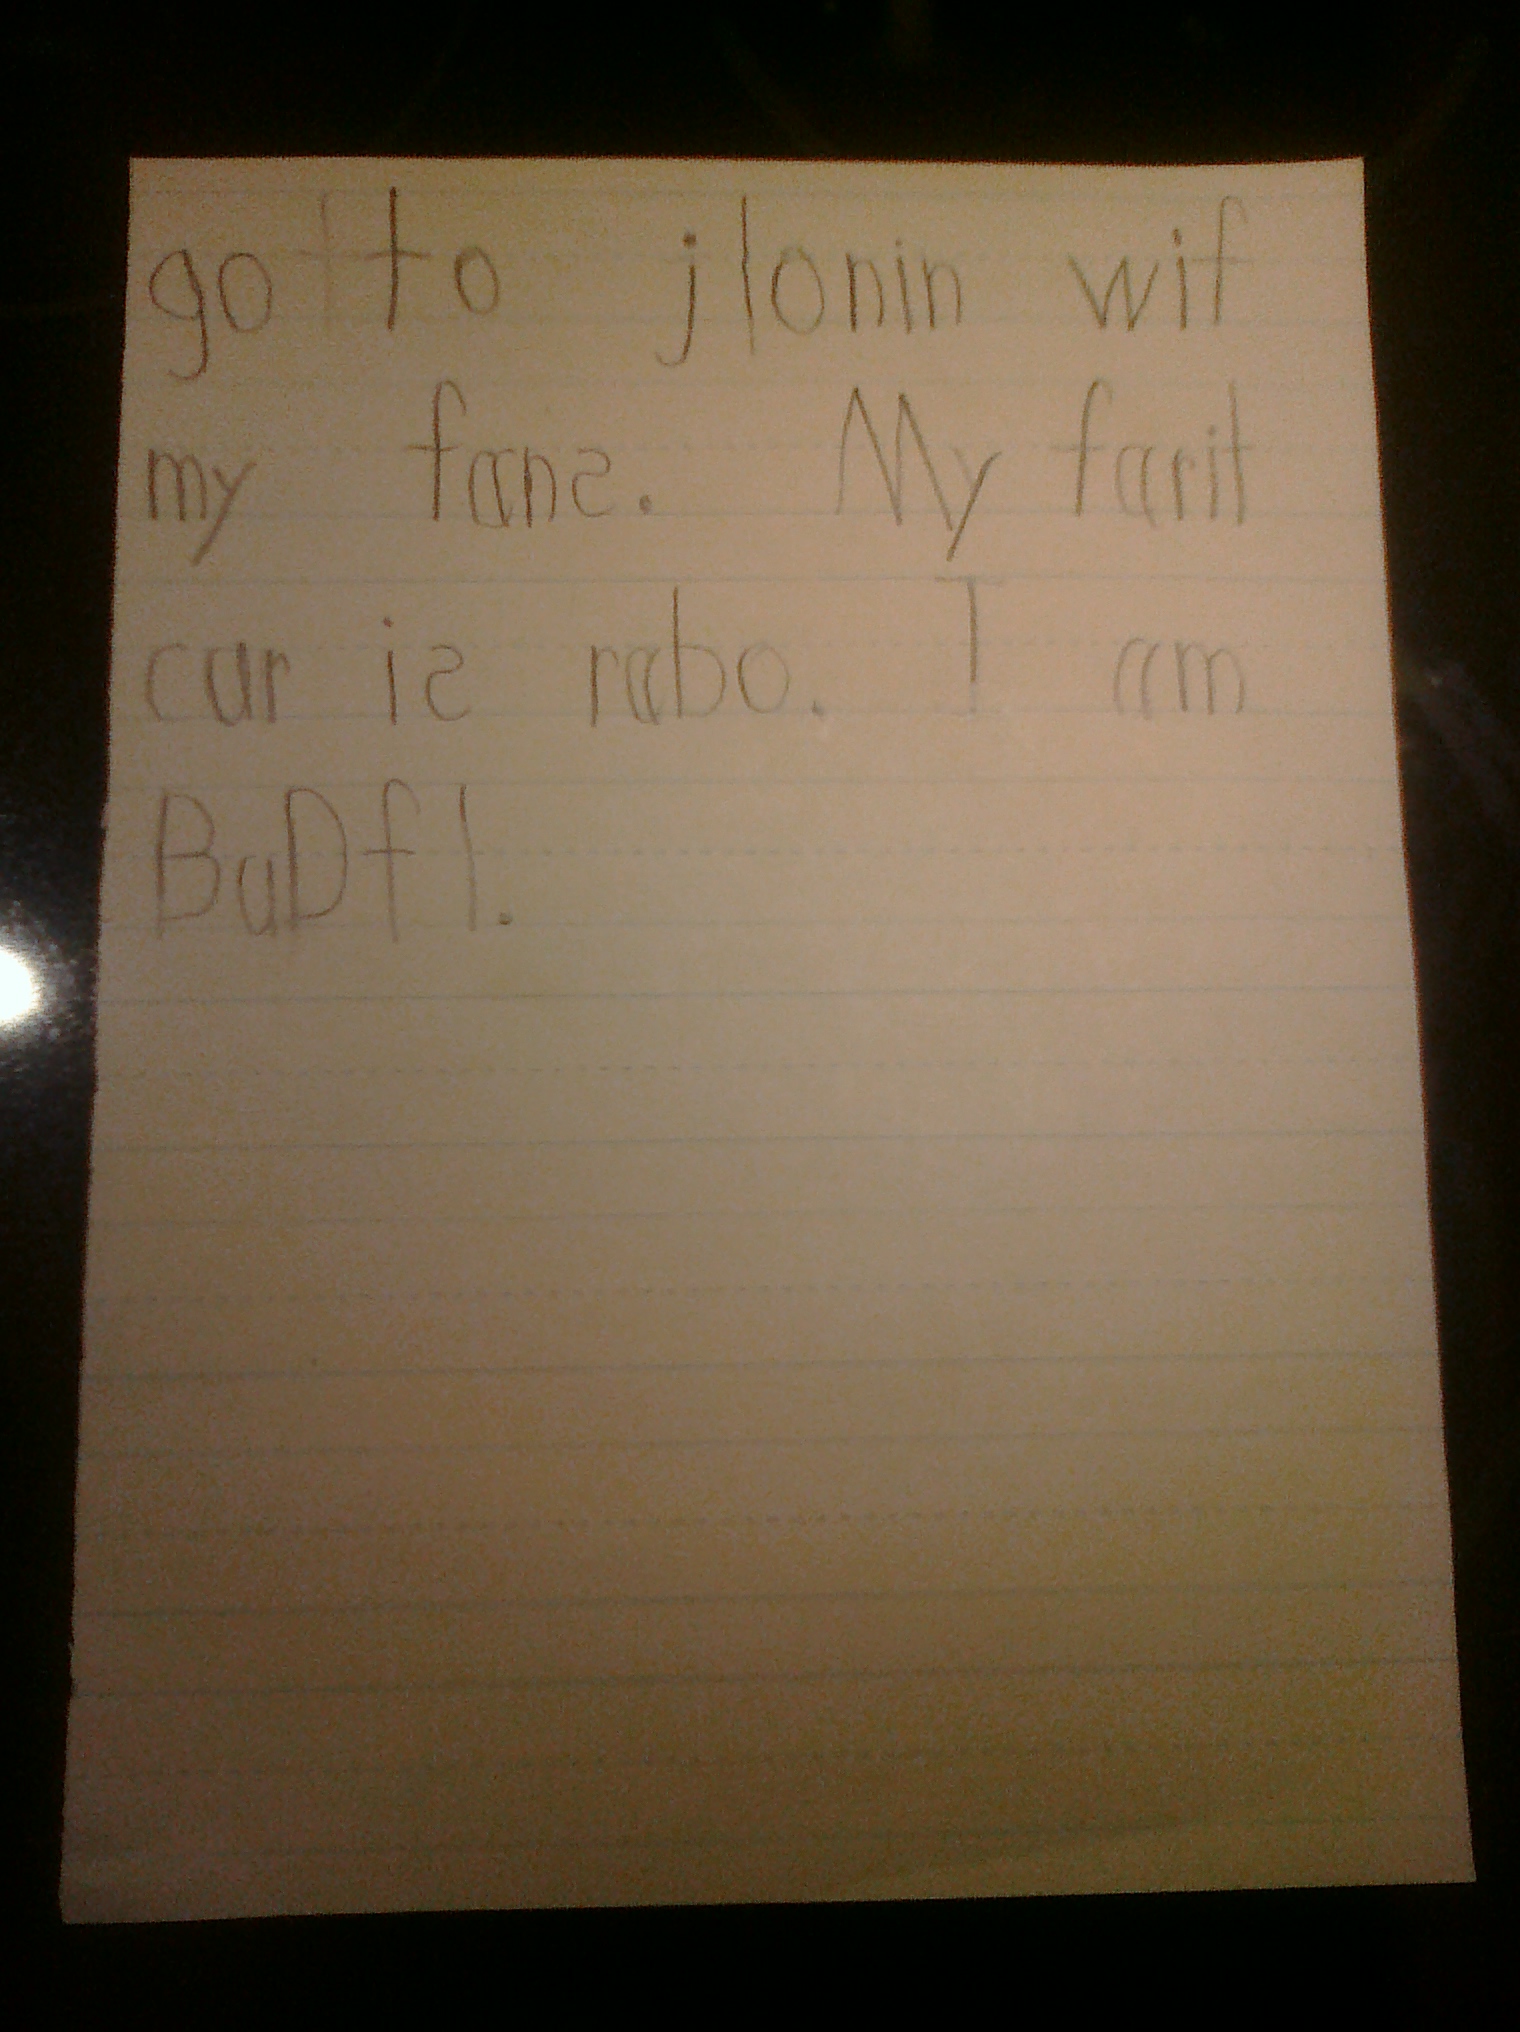 go to jlonin wif
my fans. My farit
cur is rabo. I am
BuDfl.